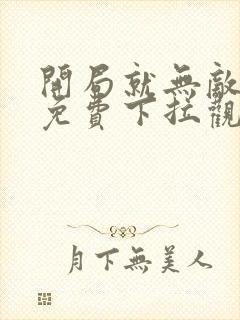 開局就無敵
免費下拉觀
月下無美人